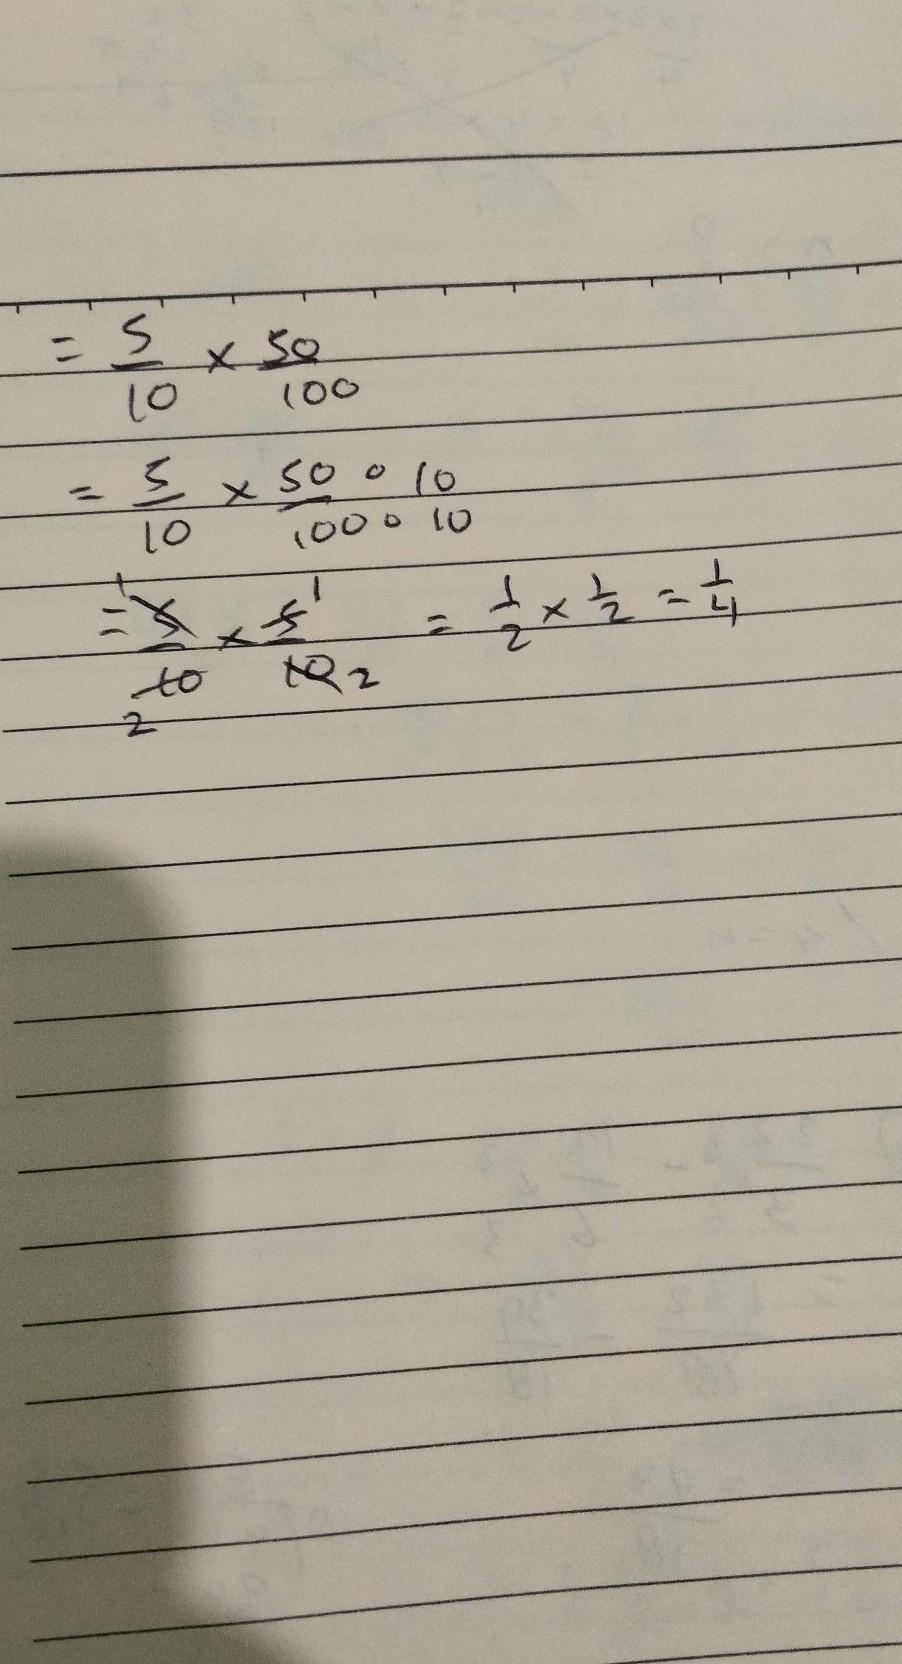 = 5/10 × 50/100
= 5/10 × 50 ∘ 10/100 ∘ 10
= 5 1/10 2 × 5 1/10 2 = 1/2 × 1/2 = 1/4